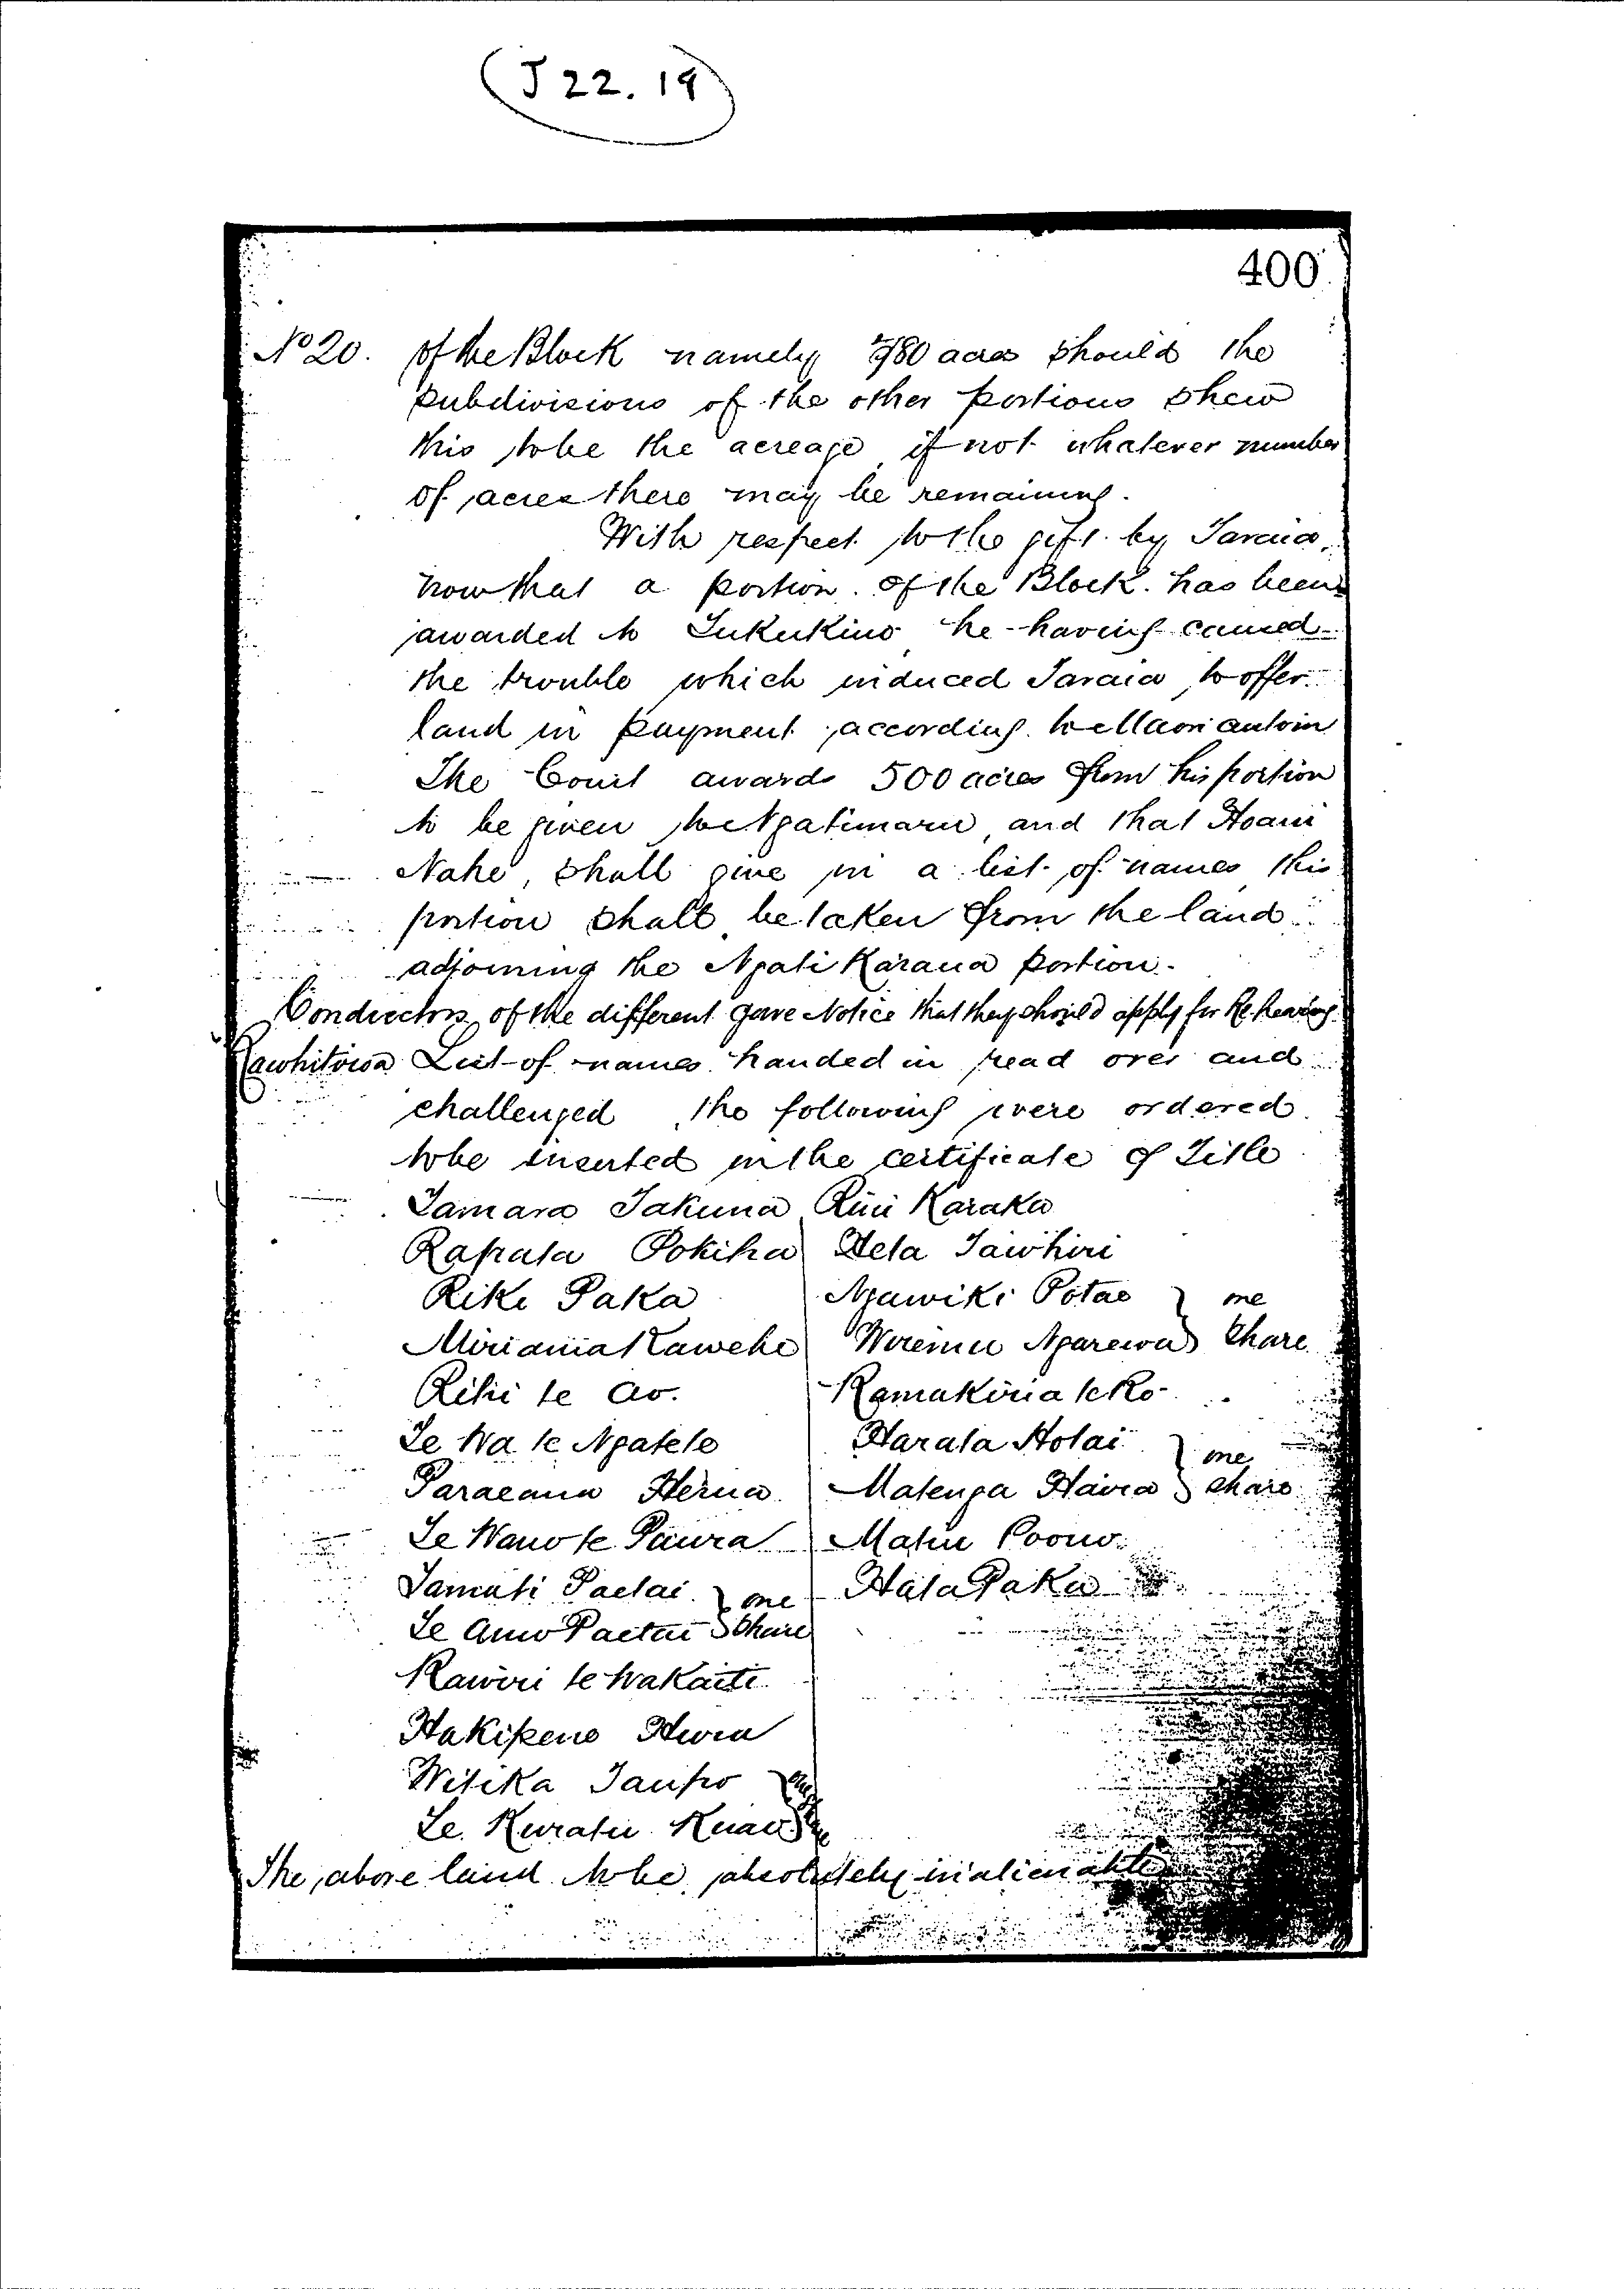 J 22. 19
400
No 20. of the Block namely 780 acres should the
subdivisions of the other portions shew
this to be the acreage if not whatever number
of acres there may be remaining.
With respect to the gift by Taraia,
now that a portion of the Block has been
awarded to Tukukino he having caused
the trouble which induced Taraia to offer
land in payment according to Maori custom
The Court awards 500 acres from his portion
to be given to Ngatimaru and that Hoani
Nahe, shall give in a list of names this
portion shall be taken from the land
adjoining the Ngati Karaua portion.
Conductors of the different gave Notice that they should apply for Re hearing
List of names handed in read over and
challenged the following were ordered
to be inserted in the certificate of Title
Tamara Takuna Rini Karaka
Rapata Pokiha Heta Tawhiri
Rike Paka Ngawiki Potae } one
Miriama Kawehe Wiremu Ngarewa } share
Rihi te Ao. Ramakiria te Ro
Te Wa te Ngatete Harata Hotai } one
Paraeana Herua Matenga Hairia } share
Te Wano te Paura Matiu Poono
Tamati Paetai } one Hata Paka
Te Amo Paetai } Share
Rawiri te Wakaiti
Hakipene Hura
Witika Taupo
Te Kuratu
The above land to be absolutely inalienable